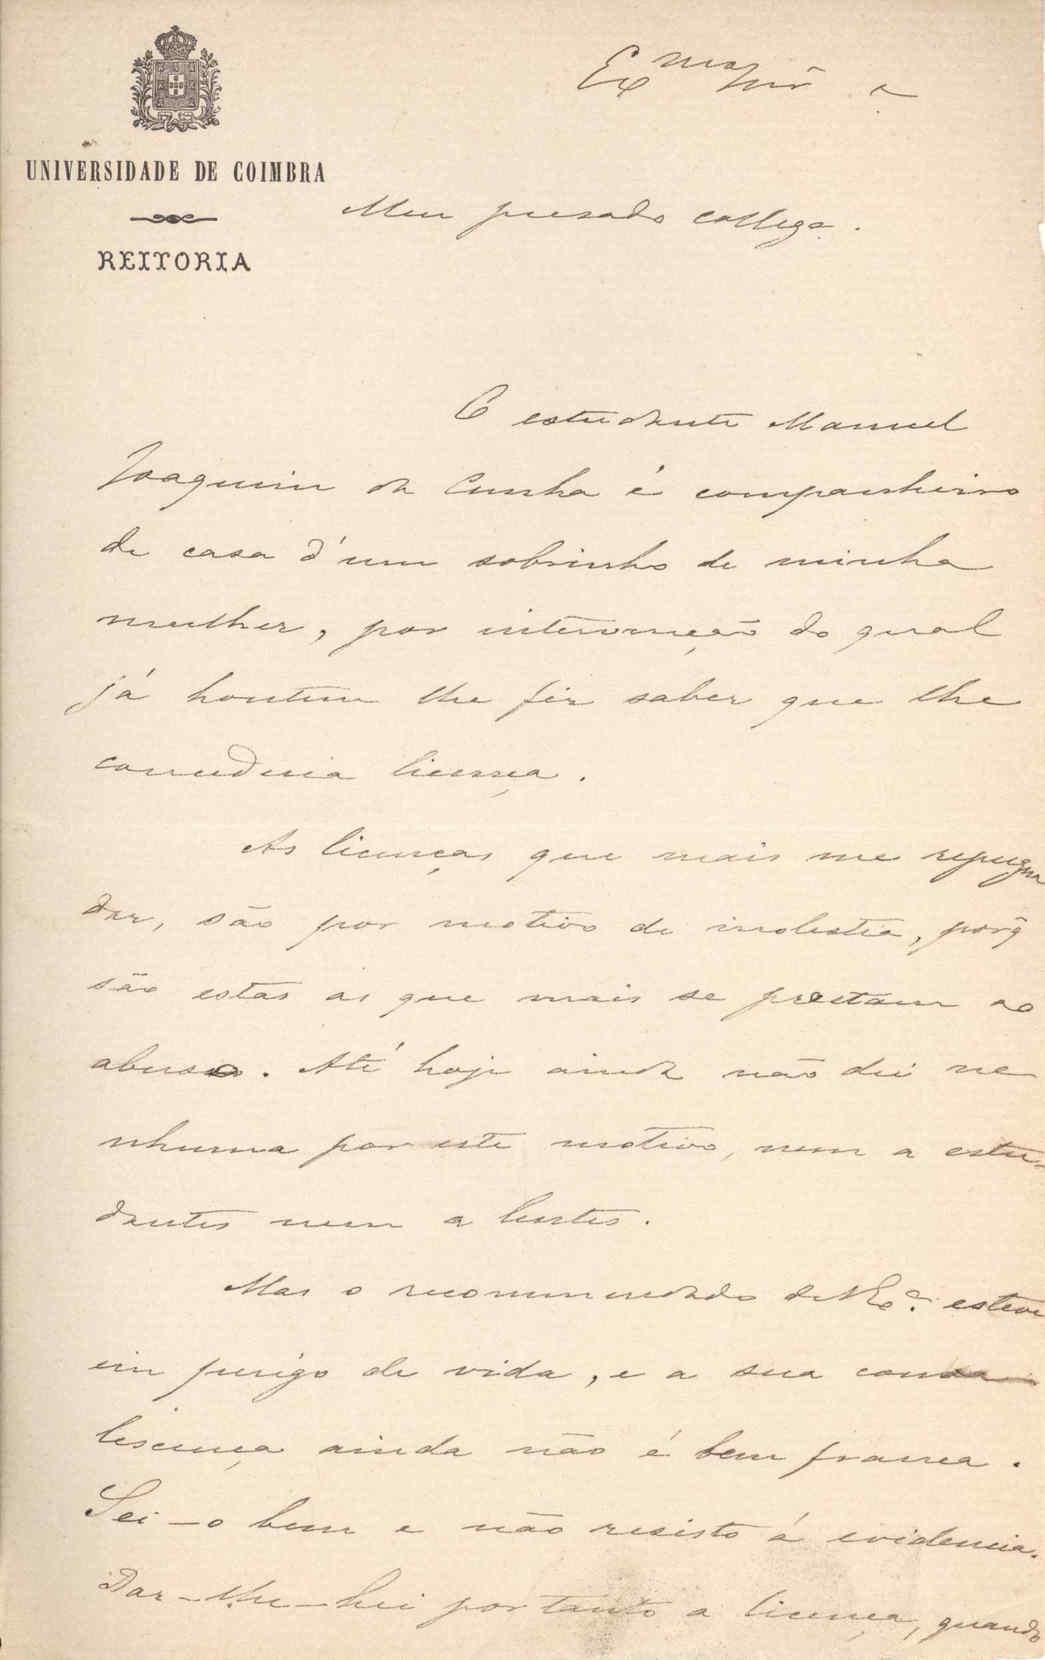 Ex^mo Snr e
UNIVERSIDADE DE COIMBRA
Meu presado collega.
REITORIA
O estudante Manuel
Joaquim da Cunha é companheiro
de casa d'um sobrinho de minha
mulher, por intervenção do qual
já hontem lhe fiz saber que lhe
concederia licença.
As licenças que mais me repugna
dar, são por motivo de molestia, porq̃
são estas as que mais se prestam ao
abuso. Até hoje ainda não dei ne
nhuma por este motivo, nem a estu-
dantes nem a lentes.
Mas o recommendado de V. Ex.ª esteve
em perigo de vida, e a sua conva
lescença ainda não é bem franca.
Sei-o bem e não resisto á evidencia.
Dar-lhe-hei portanto a licença, quando